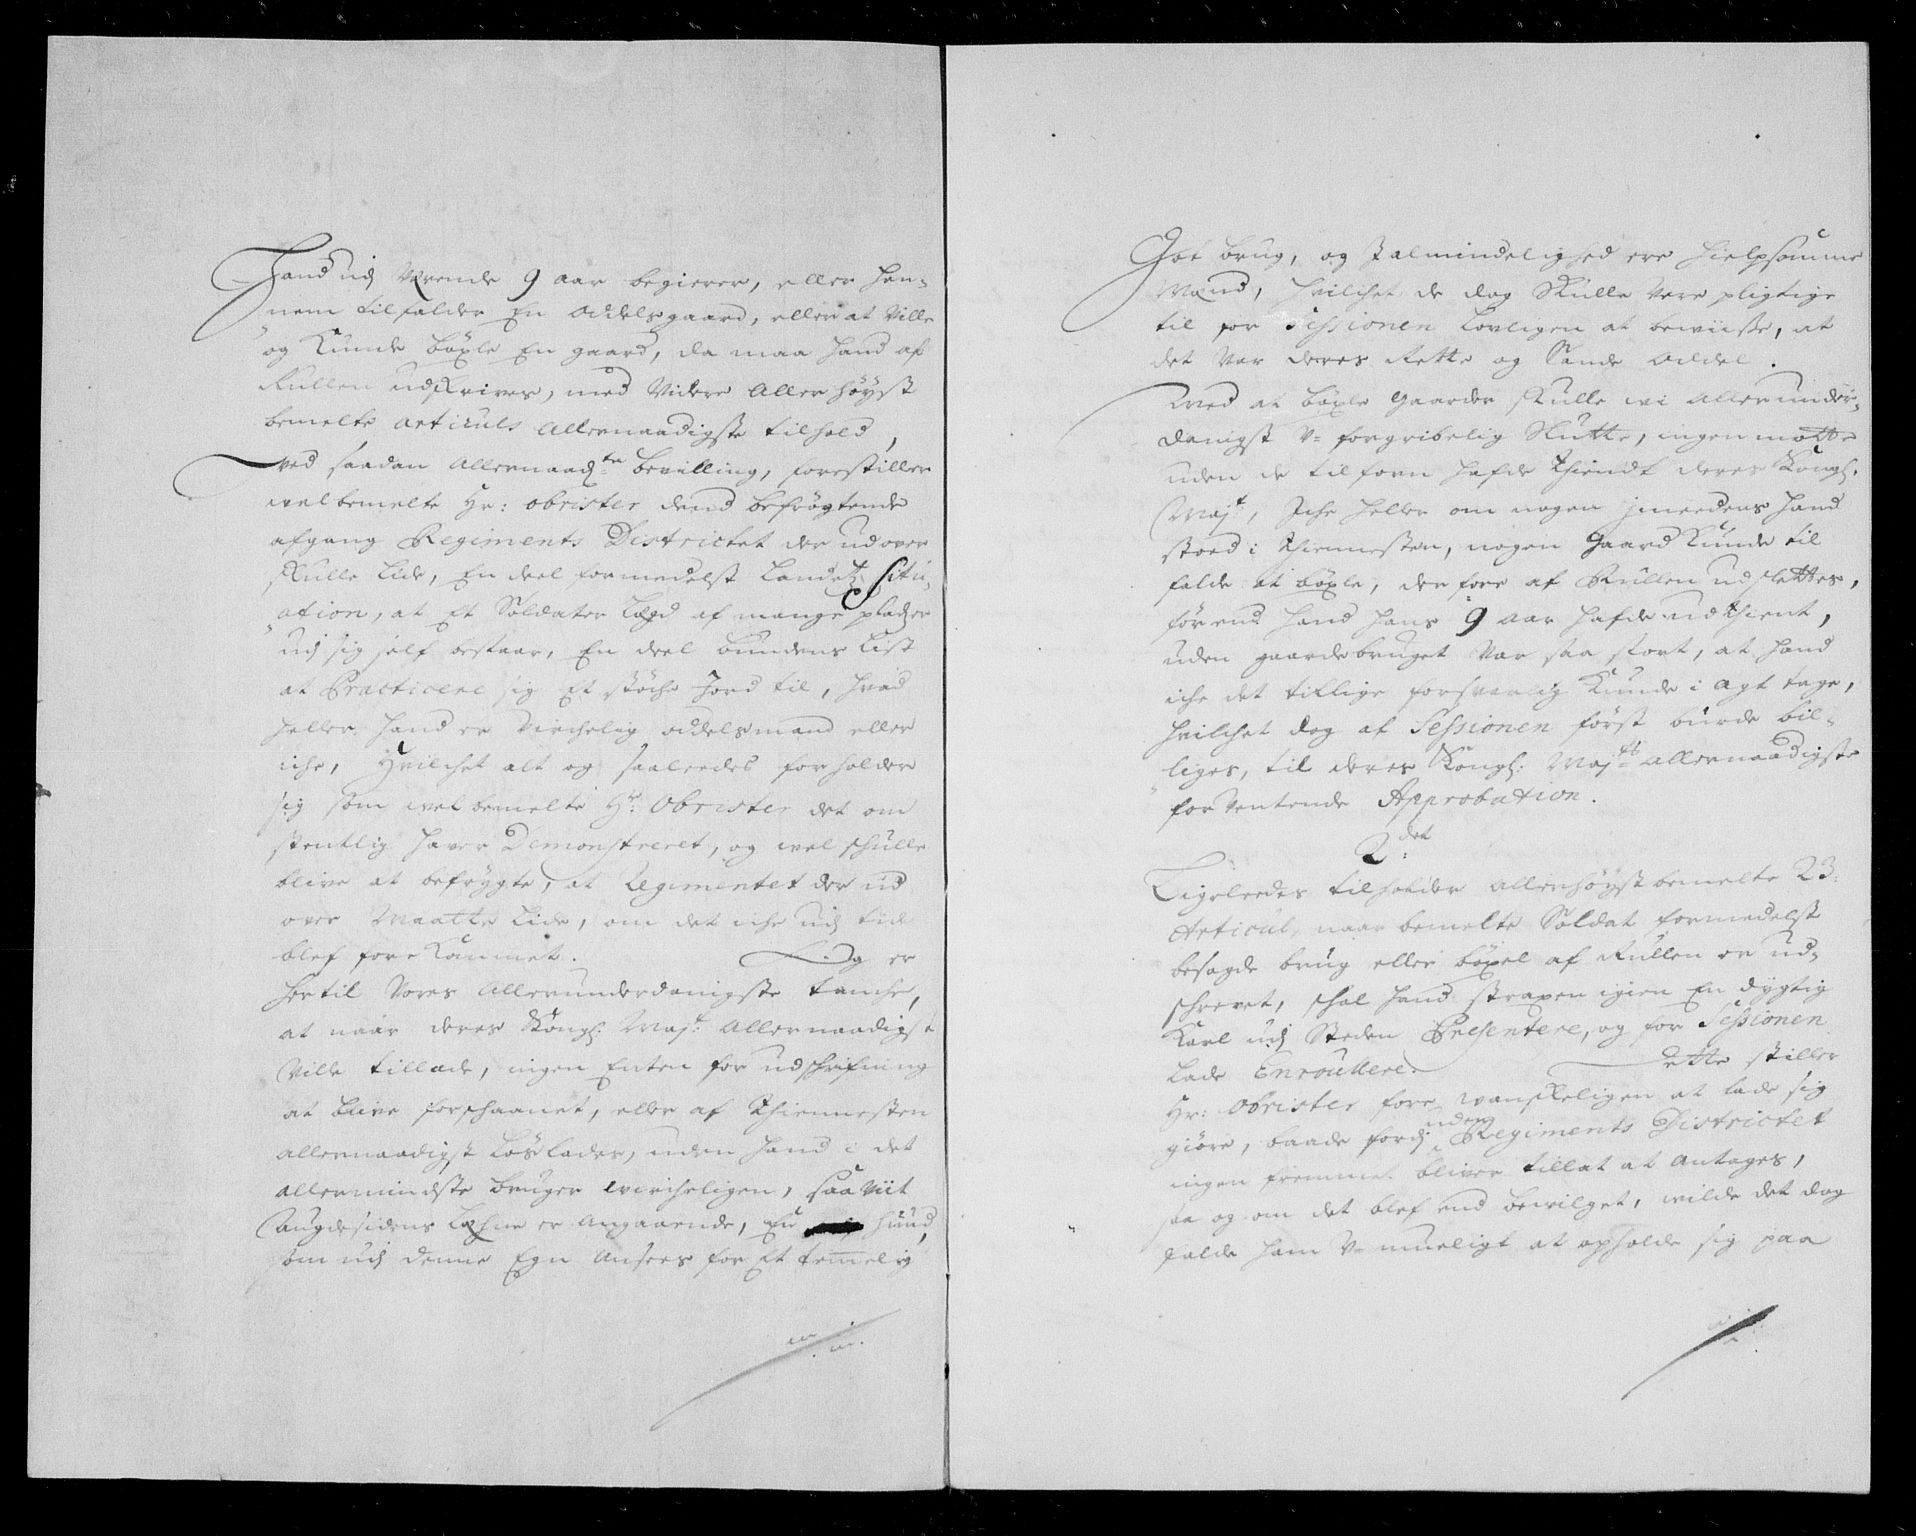 Hand udj Wærende 9 aar begierer, eller han-
nem tilfalder En Oddelsgaard, eller at Ville
og Kunde böxle En gaard, da maa hand af
Rullen udskrives, med Videre Aller höyst
bemelte Articuls Allernaadigste tilhold,
ved saadan Allernaadste bevilling, forestiller
welbemelte Hr: Obrister dend befrögtende
afgang Regiments Districtet der udover
skulle Lide, En deel formedelst Landetz Situ-
ation, at Et Soldater Lægd af mange pladzer
udj sig self bestaar, En deel bundens List
at Practicere sig Et støche Jord til, hvad
heller hand er virchelig oddelsmand eller
iche, Hvilchet alt og saaleedes forholder
sig som welbemelte Hr: Obrister det om
stentlig haver Demonstreret, og vel schulle
blive at befrygte, at Regimentet der ud
over Maatte Lide, om det iche udj tide
blef forekommet. Og er
hertil Vores Allerunderdanigste tanche,
at naar deres Kongl: Mayt: Allernaadigst
Ville tillade, ingen Enten for udschrifning
at blive forschaanet, eller af Thiennesten
allernaadigst Löslades, uden hand i det
allermindste bruger wircheligen, saa viit
Augdesidens Læhne er Angaaende, En hüüd,
som udj denne Egn Ansees for Et temmelig
Got brug, og J almindelighed ere hielpsomme
Mænd, hvilchet de dog Skulle Være pligtige
til for Sessionen Lovligen at bewiisse, at
det Var deres Rette og Sande Oddel.
Med at böxle Gaarder skulle wi Allerunder-
danigst V-forgribelig Slutte, ingen motte
uden de tilforn hafde Thiendt deres Kongl:
Mayt, Iche heller om nogen jmeedens hand
stoed i Thiennesten, nogen Gaard Kunde til
falde at böxle, der fore af Rullen udslettes,
förend hand hans 9 aar hafde udthient,
uden gaardebruget Var saa stort, at hand
iche det tillige forsvarlig Kunde i agt tage,
hvilchet dog af Sessionen först burde bil-
liges, til deres Kongl: Mayts Allernaadigste
forventende Approbation.
2det
Ligeleedes tilholder Allerhöystbemelte 23:
Articul, naar bemelte Soldat formedelst
besagde brug eller böxel af Rullen er ud-
schrevet, schal hand straxen igien En dygtig
Karl udj Steden Præsentere, og for Sessionen
lade Enroullere. Dette stiller
Hr: Obrister fore wanskeligen at lade sig
giöre, baade fordj uden Regiments Districtet
ingen fremmet bliver tillat at Antages,
saa og om det blef end bevilget, wilde det dog
falde ham V-mueligt at opholde sig paa